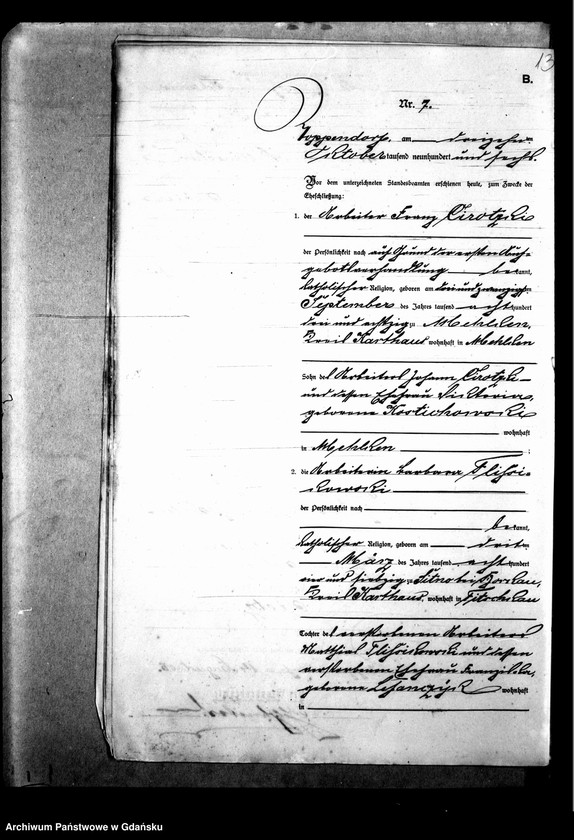 13
B.
Nr. 7.
am dreizehn
Oktober tausend neunhundert und sechs.
Vor dem unterzeichneten Standesbeamten erschienen heute, zum Zwecke der
Eheschließung:
1. der Arbeiter Franz Cirotzki
der Persönlichkeit nach auf Grund der ersten Auf-
gebotsverhandlung bekannt,
katholischer Religion, geboren am drei und zwanzigsten
September des Jahres tausend achthundert
drei und achtzig zu Mehlken,
Kreis Karthaus wohnhaft in Mehlken
Sohn des Arbeiters Johann Cirotzki
und dessen Ehefrau Victoria,
geborene
wohnhaft
in Mehlken ;
2. die Arbeiterin Barbara
kowski
der Persönlichkeit nach
bekannt,
katholischer Religion, geboren am dritten
März des Jahres tausend achthundert
vier und siebzig zu
Kreis Karthaus, wohnhaft in
Tochter des verstorbenen Arbeiters
Matthias und dessen
verstorbenen Ehefrau Franziska,
geborene wohnhaft
in
Archiwum Państwowe w Gdańsku